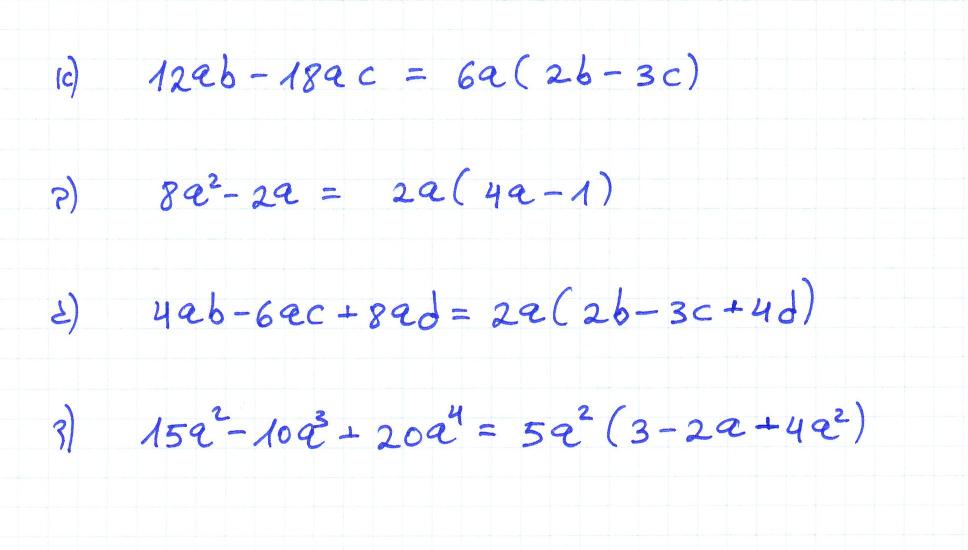 א) 12ab - 18ac = 6a(2b - 3c)
ב) 8a² - 2a = 2a(4a - 1)
ג) 4ab - 6ac + 8ad = 2a(2b - 3c + 4d)
ד) 15a² - 10a³ + 20a⁴ = 5a²(3 - 2a + 4a²)